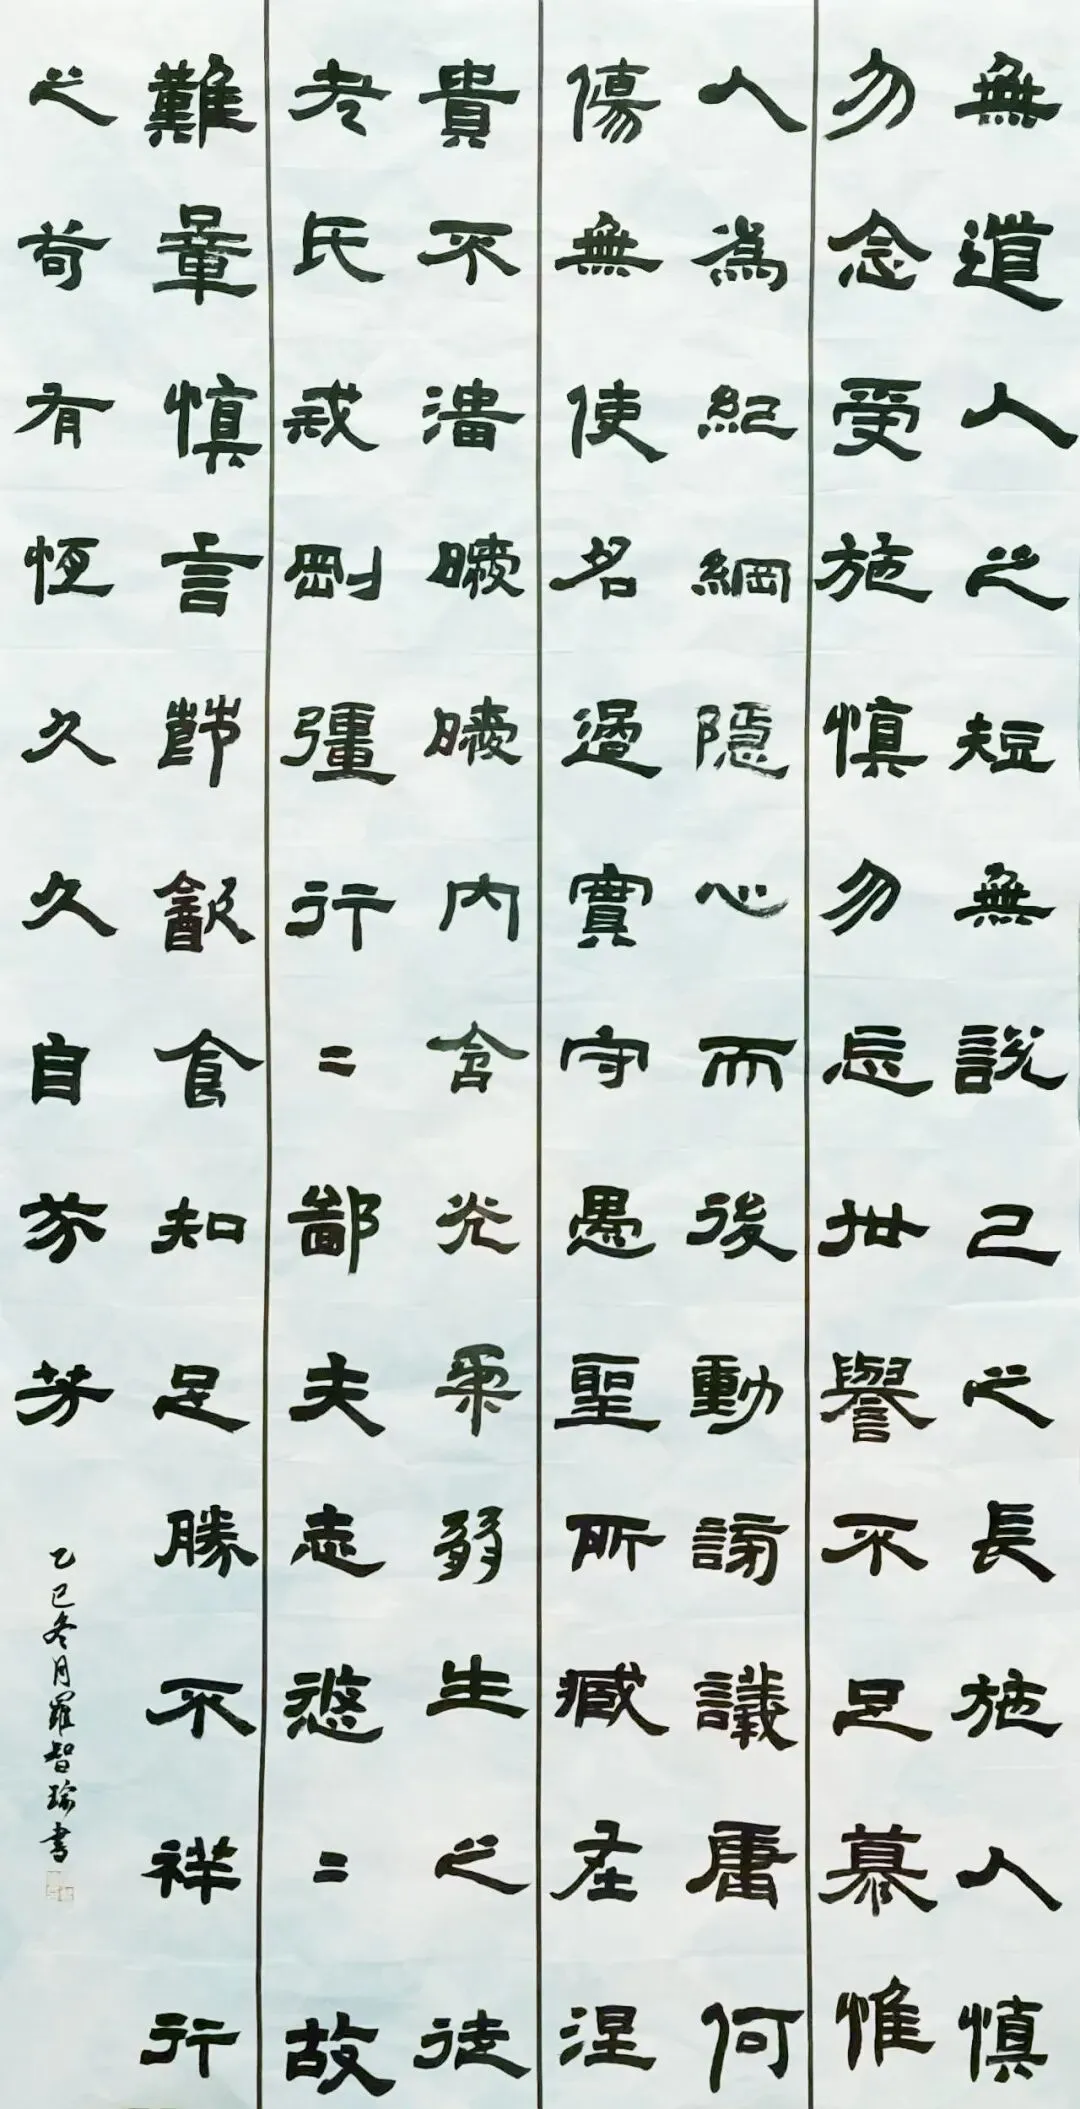 無道人之短無說己之長施人慎
勿念受施慎勿忘世譽不足慕惟
人為紀綱隱心而後動謗議庸何
傷無使名過實守愚聖所臧在涅
貴不淄曖曖內含光柔弱生之徒
老氏戒剛彊行=鄙夫志悠=故
難量慎言節飲食知足勝不祥行
之苟有恆久久自芬芳
乙巳冬月羅智瑜書